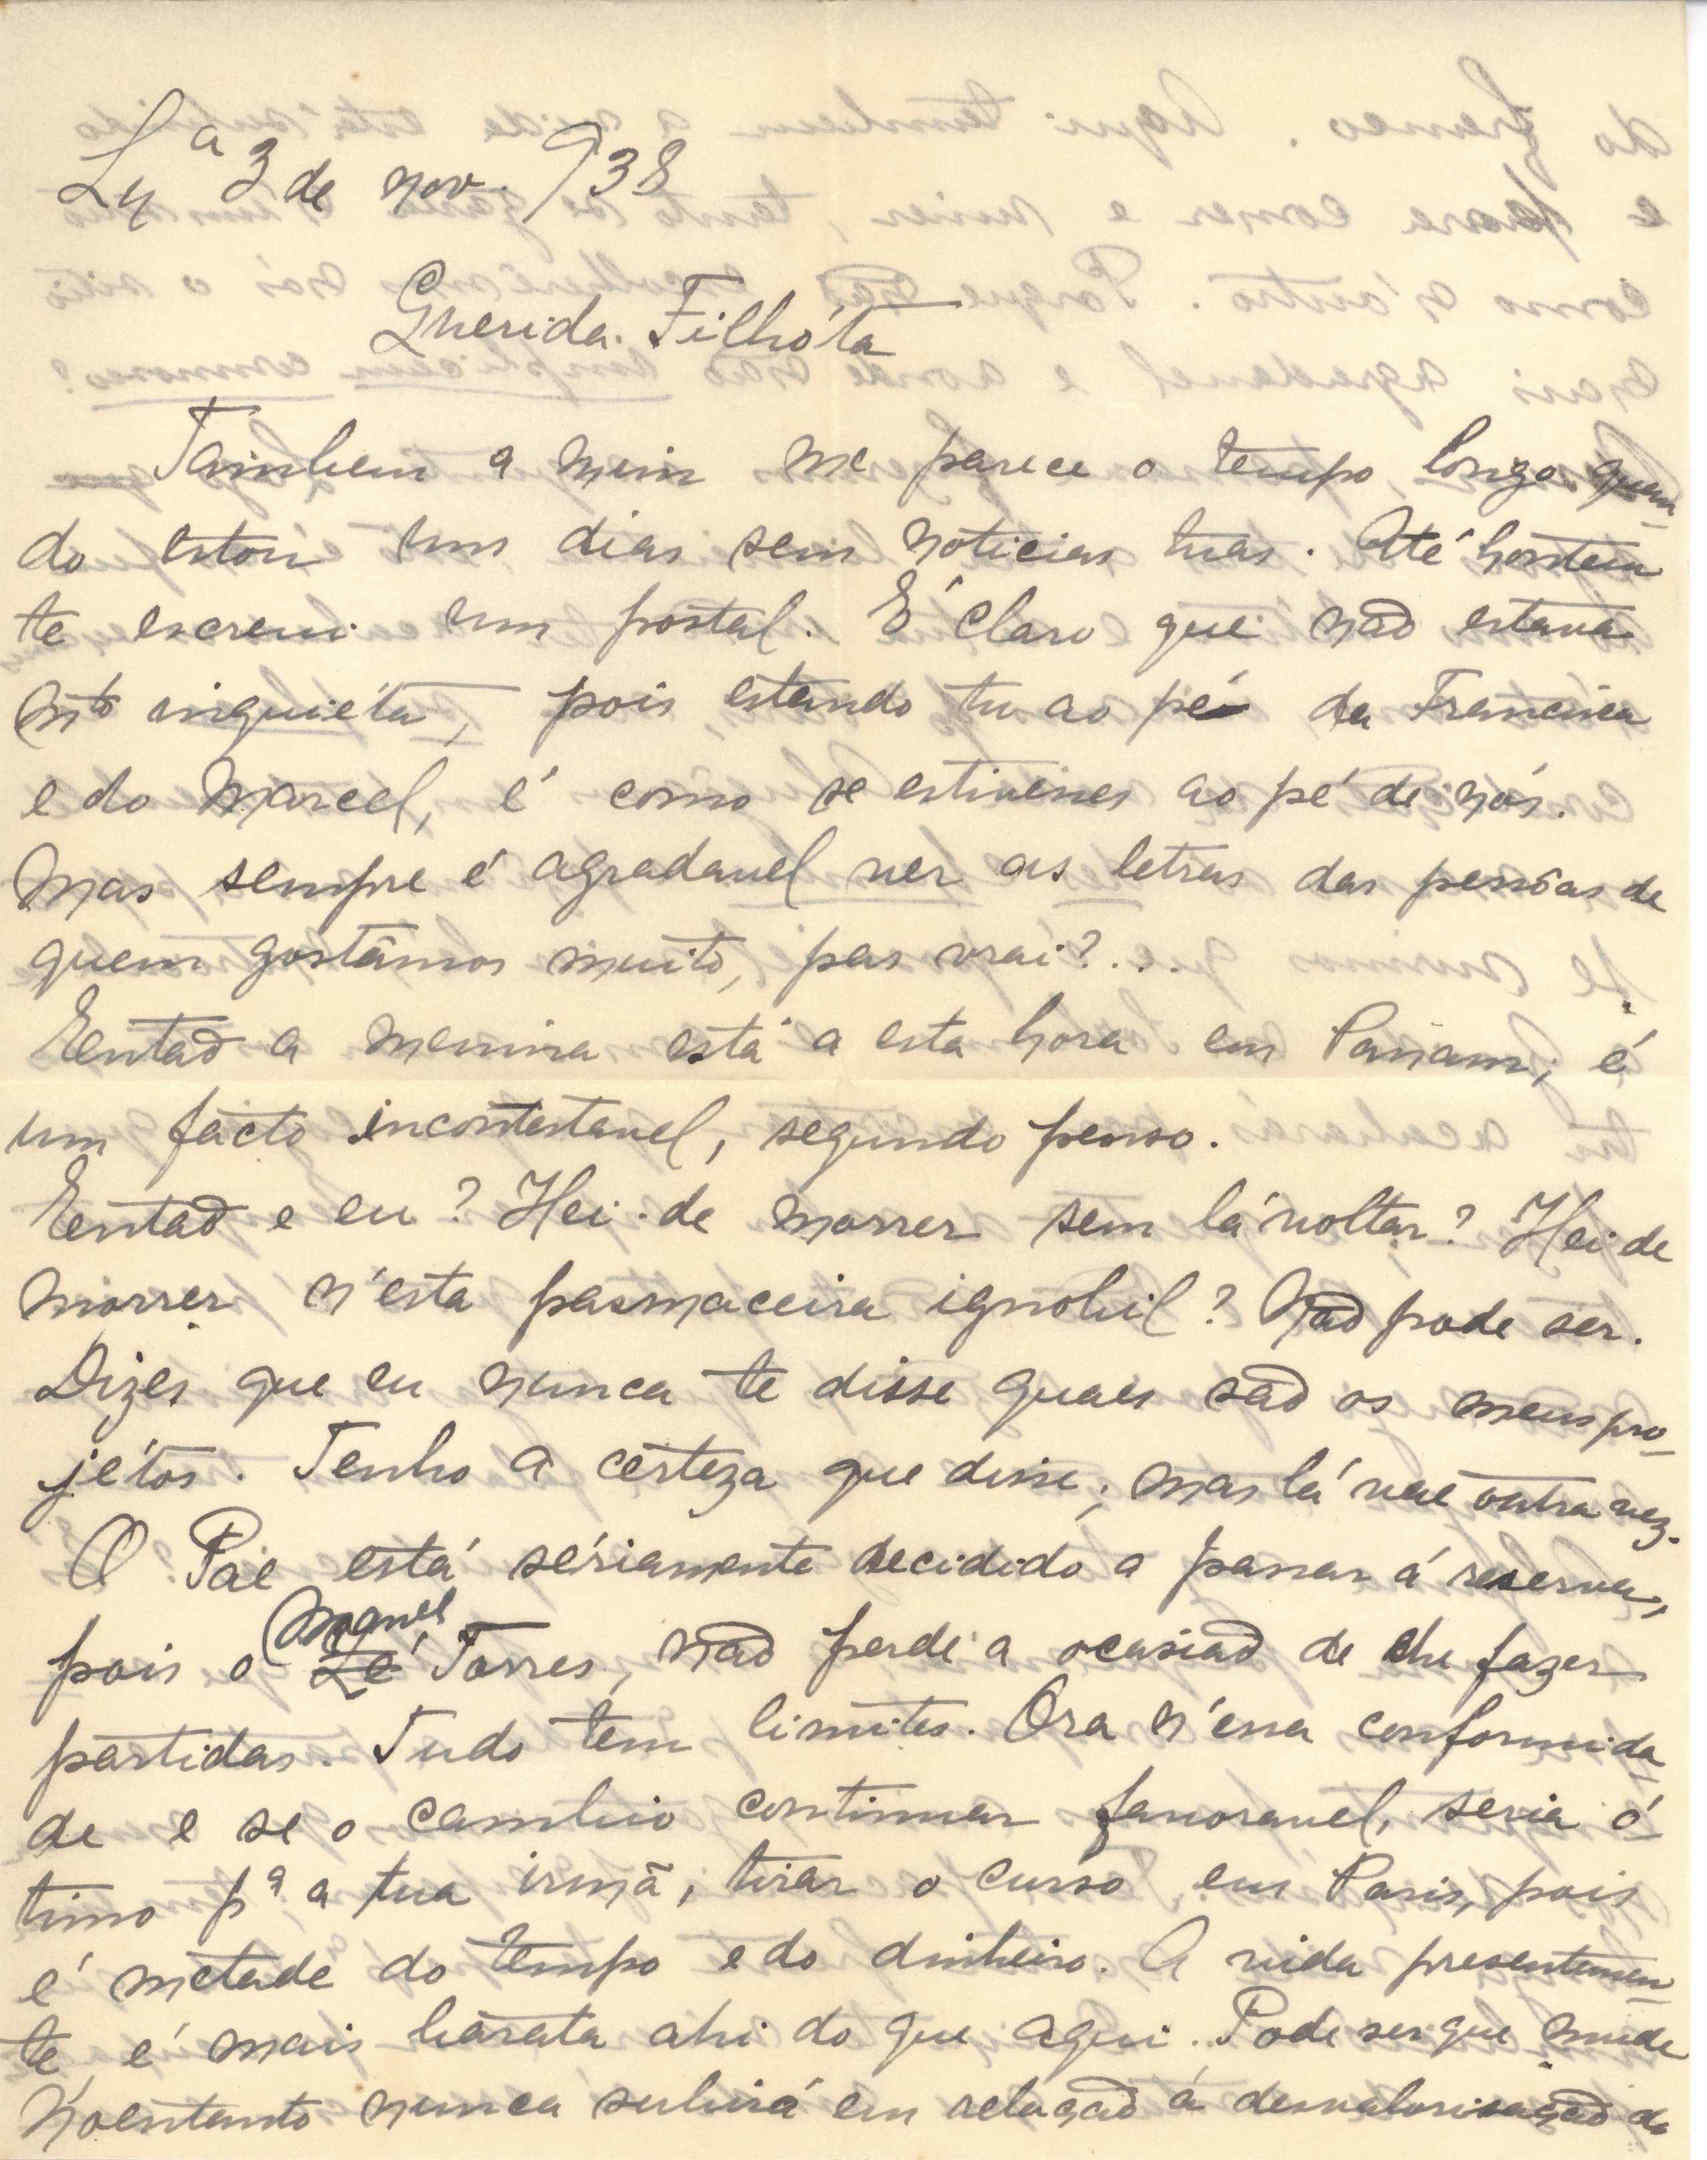 Lxª 3 de nov. 938
Querida Filhóta
Tambem a mim me parece o tempo longo quan-
do estou uns dias sem noticias tuas. Até hontem
te escrevi um postal. É claro que não estava
mtº inquiéta, pois estando tu ao pé da Francisca
e do Marcel, é como se estivesses ao pé de nós.
Mas sempre é agradavel ver as letras das pessôas de
quem gostâmos muito, pas vrai?...
Entao a menina está a esta hora em Panam; é
um facto incontestavel, segundo penso.
Entao e eu? Hei-de morrer sem lá voltar? Hei de
morrer n'esta pasmaceira ignobil? Não pode ser.
Dizes que eu nunca te disse quaes são os meus pro-
jétos. Tenho a certeza que disse; mas lá vae outra vez.
O Pae está sériamente decidido a passar á reserva,
pois o Manuel Zé Torres, não perde a ocasião de lhe fazer
partidas. Tudo tem limites. Ora n'essa conformida-
de e se o cambio continuar favoravel, seria ó-
timo pª a tua irmã, tirar o curso em Paris, pois
é metade do tempo e do dinheiro. A vida presentemen-
te é mais barata ahi do que aqui. Pode ser que mude
Noentanto nunca subirá em relação á desvalorisação do